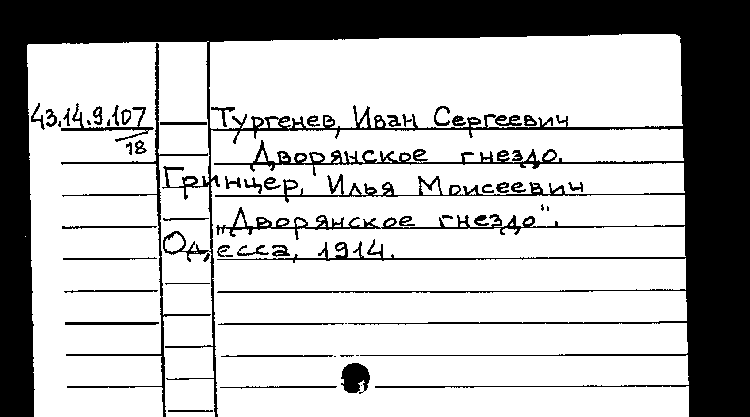 43.14.9.107 Тургенев, Иван Сергеевич
18
Дворянское гнездо.
Гринцер, Илья Моисеевич
„Дворянское гнездо".
Одесса, 1914.